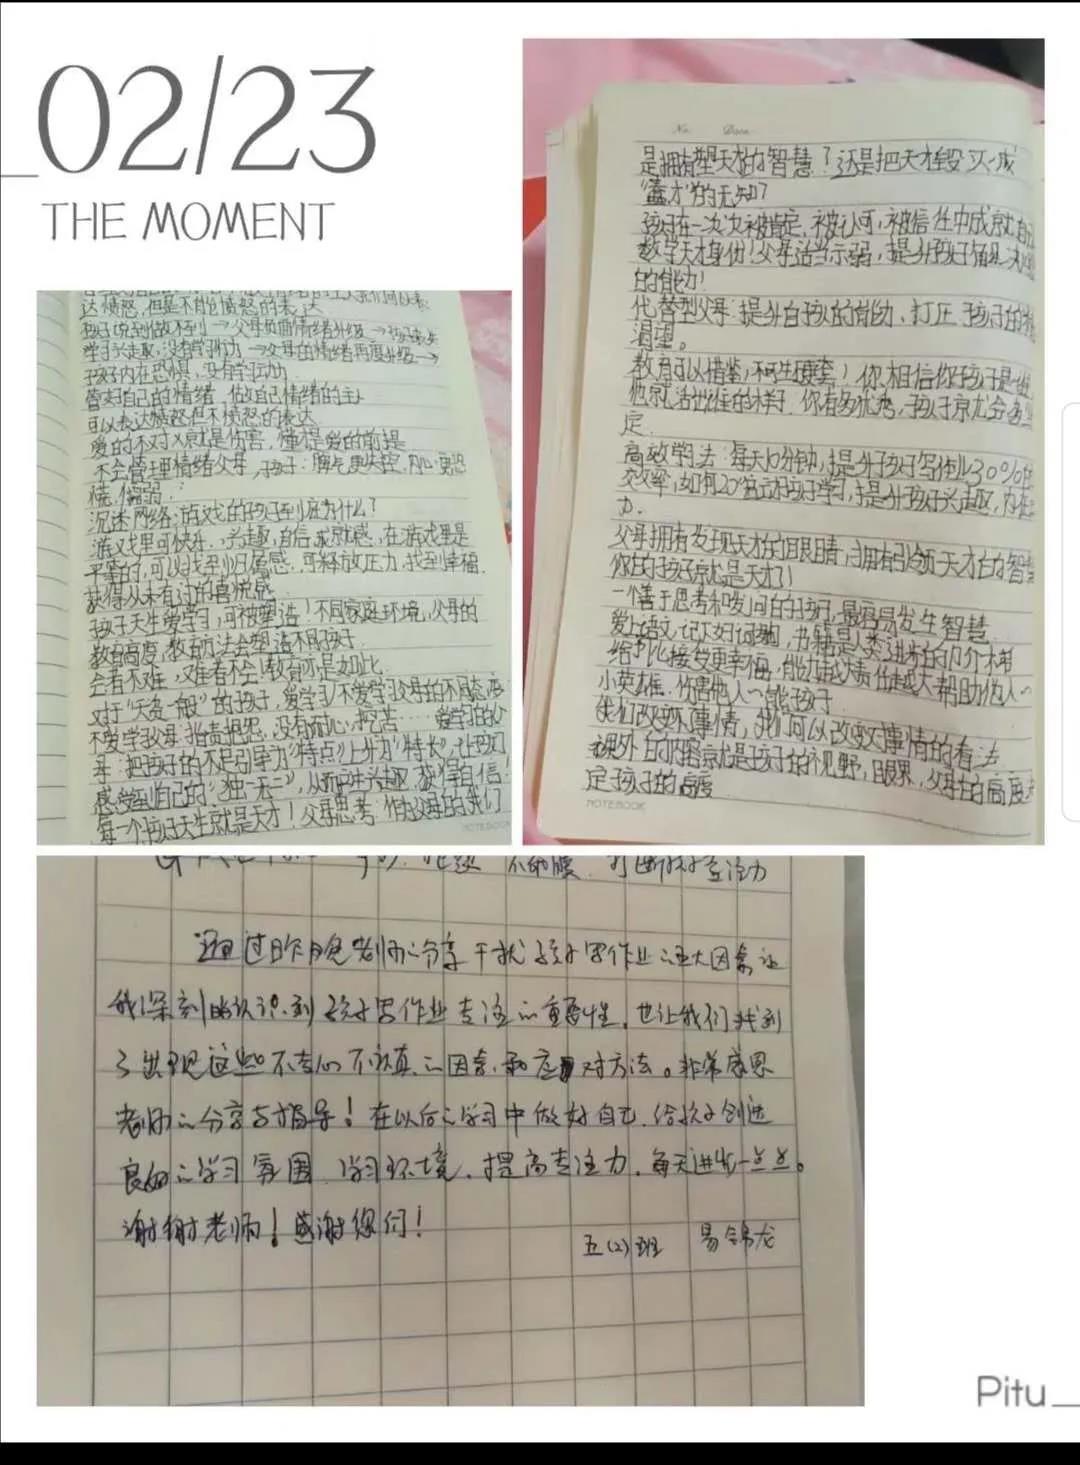 02/23
THE MOMENT
达愤怒,但是不能愤怒的表达
孩子说到做不到→父母负面情绪升级→孩子失
学习兴趣,没有学习动力→父母的情绪再度升级→
孩子内在恐惧,没有学习动力
管好自己的情绪,做自己情绪的主人
可以表达愤怒但不愤怒的表达
爱的不对义就是伤害,懂是爱的前提
不会管理情绪父母,孩子:脾气更失控,内心更恐
慌,懦弱;
沉迷网络游戏的孩子到底为什么?
游戏里可快乐,兴趣,自信,成就感,在游戏里是
平等的,可以找到归属感,可释放压力,找到幸福,
获得从未有过的喜悦感
孩子天生爱学习,可被塑造!不同家庭环境,父母的
教育高度,教育方法会塑造不同孩子
会者不难,难者不会!教育亦是如此
对于“天资一般”的孩子,爱学习/不爱学习父母的不同态度
不爱学父母:指责抱怨,没有耐心,挖苦……爱学习的父
母:把孩子的不足引导为“特点”上升为“特长”,让孩子
感受到自己的“独一无二”,从而产生兴趣,获得自信!
每一个孩子天生就是天才!父母思考:作为父母的我们
NOTEBOOK
No. Date.
是拥有塑天才的智慧?还是把天才毁灭成
“蠢才”的无知?
孩子在一次次被肯定,被认可,被信任中成就自己
数学天才身份!父母适当示弱,提升孩子
的能力!
代替型父母:提升自己的能力,打压孩子的
渴望。
教育可以借鉴,不可生硬套!你相信你孩子是
他就活出谁的样子,你有多优秀,孩子
定.
高效学习法:每天10分钟,提升孩子写作业30%的
效率,如何20%陪孩子学习,提升孩子兴趣,内在
力.
父母拥有发现天才的眼睛,拥有引领天才的智慧
你的孩子就是天才!
一个善于思考和发问的孩子,最容易发生智慧
爱上语文,记下好词,书籍是人类进步的阶梯
给予比接受更幸福,能力越大责任越大帮助他人~
小英雄,伤害他人~熊孩子
我们改变不了事情,我们可以改变对事情的看法
课外的内容就是孩子的视野,眼界,父母的高度
定孩子的高度
NOTEBOOK
打断孩子专注力
通过昨晚老师的分享干扰孩子写作业的五大因素让
我深刻的认识到孩子写作业专注的重要性,也让我们找到
了出现这些不专心不认真的因素和应对方法。非常感恩
老师的分享与指导!在以后的学习中做好自己,给孩子创造
良好的学习氛围,学习环境,提高专注力,每天进步一点点。
谢谢老师!感谢您们!
五(2)班 易锦龙
Pitu